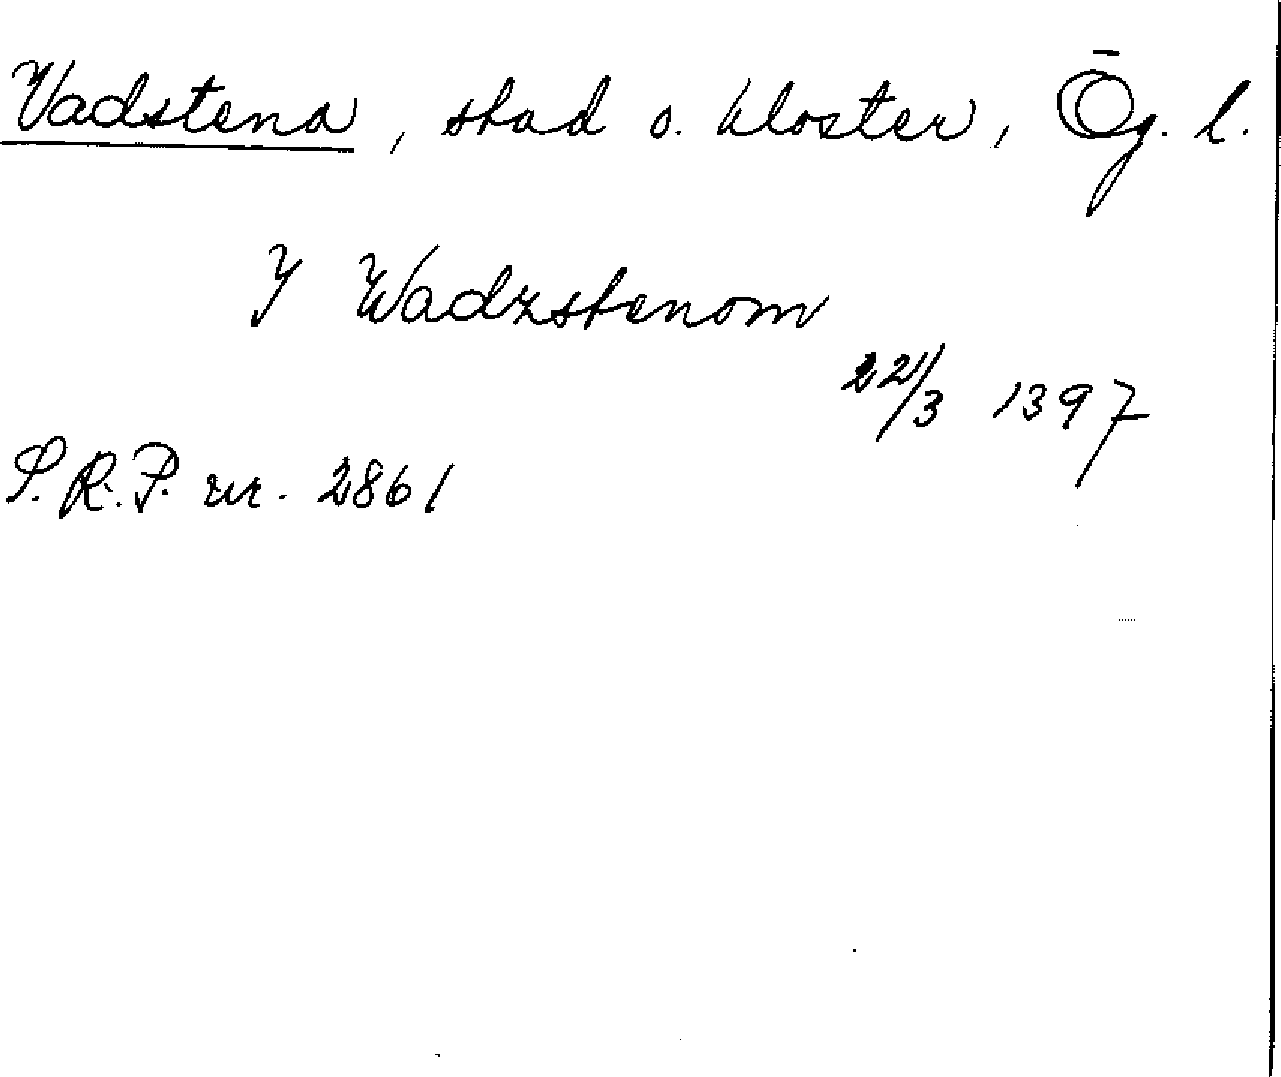 Vadstena, stad o. kloster, Ög. l.
Y Wadzstenom
22/3 1397
S.R.P. nr. 2861